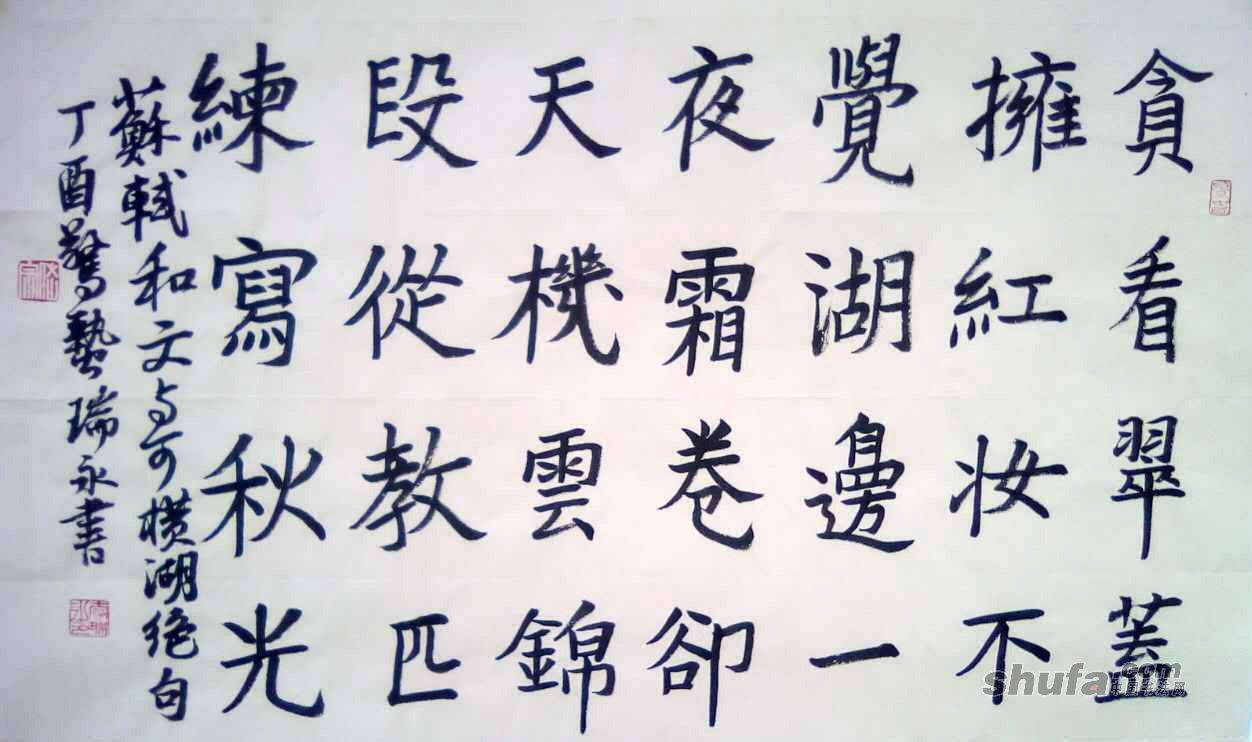 貪看翠蓋
擁紅妝不
覺湖邊一
夜霜卷卻
天機雲錦
段從教匹
練寫秋光
蘇軾和文与可橫湖絕句
丁酉驚蟄瑞永書
shufa.com
中国书法网